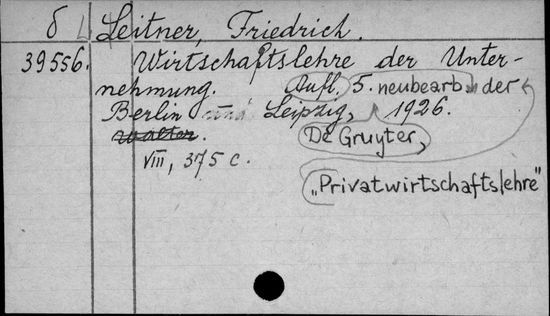 δ Leitner, Friedrich.
39556. Wirtschaftslehre der Unter-
nehmung. Aufl. 5. neubearb. der
Berlin und Leipzig, 1926.
Walter. De Gruyter,
VIII, 375 c.
„Privatwirtschaftslehre"